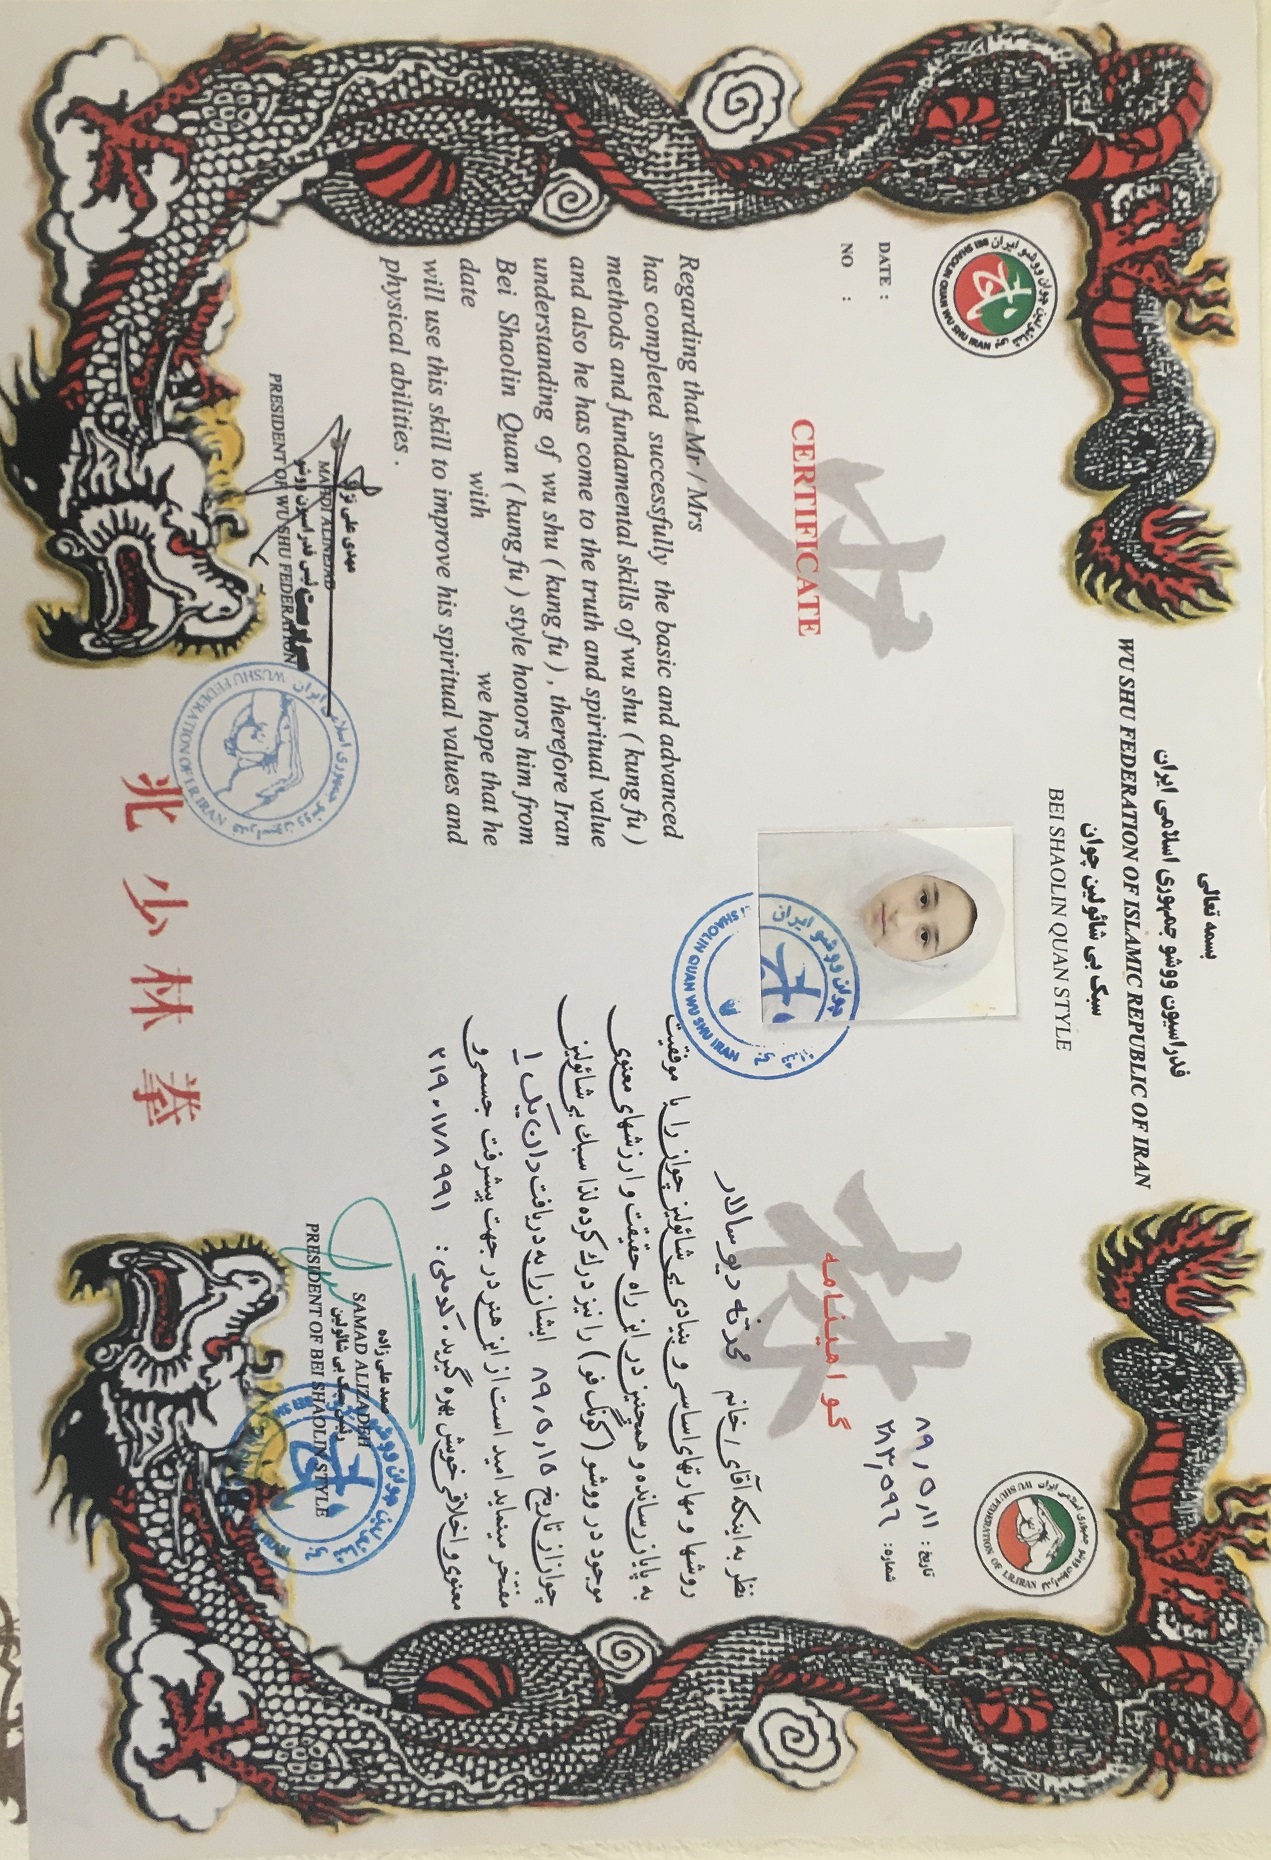 بسمه تعالی
فدراسیون ووشو جمهوری اسلامی ایران
WU SHU FEDERATION OF ISLAMIC REPUBLIC OF IRAN
سبک بی شائولین چوان
BEI SHAOLIN QUAN STYLE
DATE :
NO :
CERTIFICATE
Regarding that Mr / Mrs
has completed successfully the basic and advanced
methods and fundamental skills of wu shu ( kung fu )
and also he has come to the truth and spiritual value
understanding of wu shu ( kung fu ) , therefore Iran
Bei Shaolin Quan ( kung fu ) style honors him from
date with we hope that he
will use this skill to improve his spiritual values and
physical abilities .
تاریخ : ۸۹/۵/۱۱
شماره:
گواهینامه
نظر به اینکه آقای / خانم محدثه دیوسالار
روشها و مهارتهای اساسی و بنیادی بی شائولین چوان را با موفقیت
به پایان رسانده و همچنین در این راه حقیقت و ارزشهای معنوی
موجود در ووشو (کونگ فو) را نیز درک کرده لذا سبک بی شائولین
چوان از تاریخ ۸۹/۵/۱۵ ایشان را به دریافت دان یک ۱
مفتخر مینماید امید است از این هنر در جهت پیشرفت جسمی و
معنوی و اخلاقی خویش بهره گیرید. کدملی: ۲۱۹۰۱۷۸۹۹۱
مهدی علی نژاد
MAHDI ALINEJAD
سرپرست فدراسیون ووشو
PRESIDENT OF WU SHU FEDERATION
صمد علی زاده
SAMAD ALIZADEH
رئیس سبک بی شائولین
PRESIDENT OF BEI SHAOLIN STYLE
WUSHU FEDERATION OF I.R.IRAN
فدراسیون ووشو جمهوری اسلامی ایران
BEI SHAOLIN QUAN WU SHU IRAN
北 少 林 拳
少 林